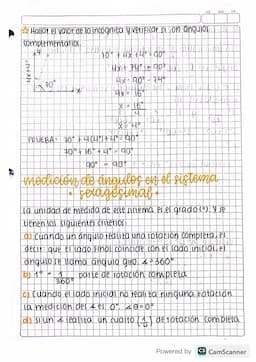 ☆ Hallar el valor de la incógnita y verificar si son ángulos
complementarios.
70° + 4x + 4° = 90°
4x + 74° = 90°
4x = 90° - 74°
4x = 16°
x = 16°
4
x = 4°
4x+4°
70°
PRUEBA: 70° + 4(4°) + 4° = 90°
70° + 16° + 4° = 90°
90° = 90°
medición de ángulos en el sistema
sexagesimal
La unidad de medida de este sistema es el grado (°). Y se
tienen los siguientes criterios:
a) Cuando un ángulo realiza una rotación completa, es
decir que el lado final coincide con el lado inicial, el
ángulo se llama ángulo giro. ∡ = 360°
b) 1° = 1 parte de rotación completa
360°
c) Cuando el lado inicial no realiza ninguna rotación
la medición del ∡ es 0°. ∡θ = 0°
d) Si un ∡ realiza un cuarto (1/4) de rotación completa
Powered by CS CamScanner